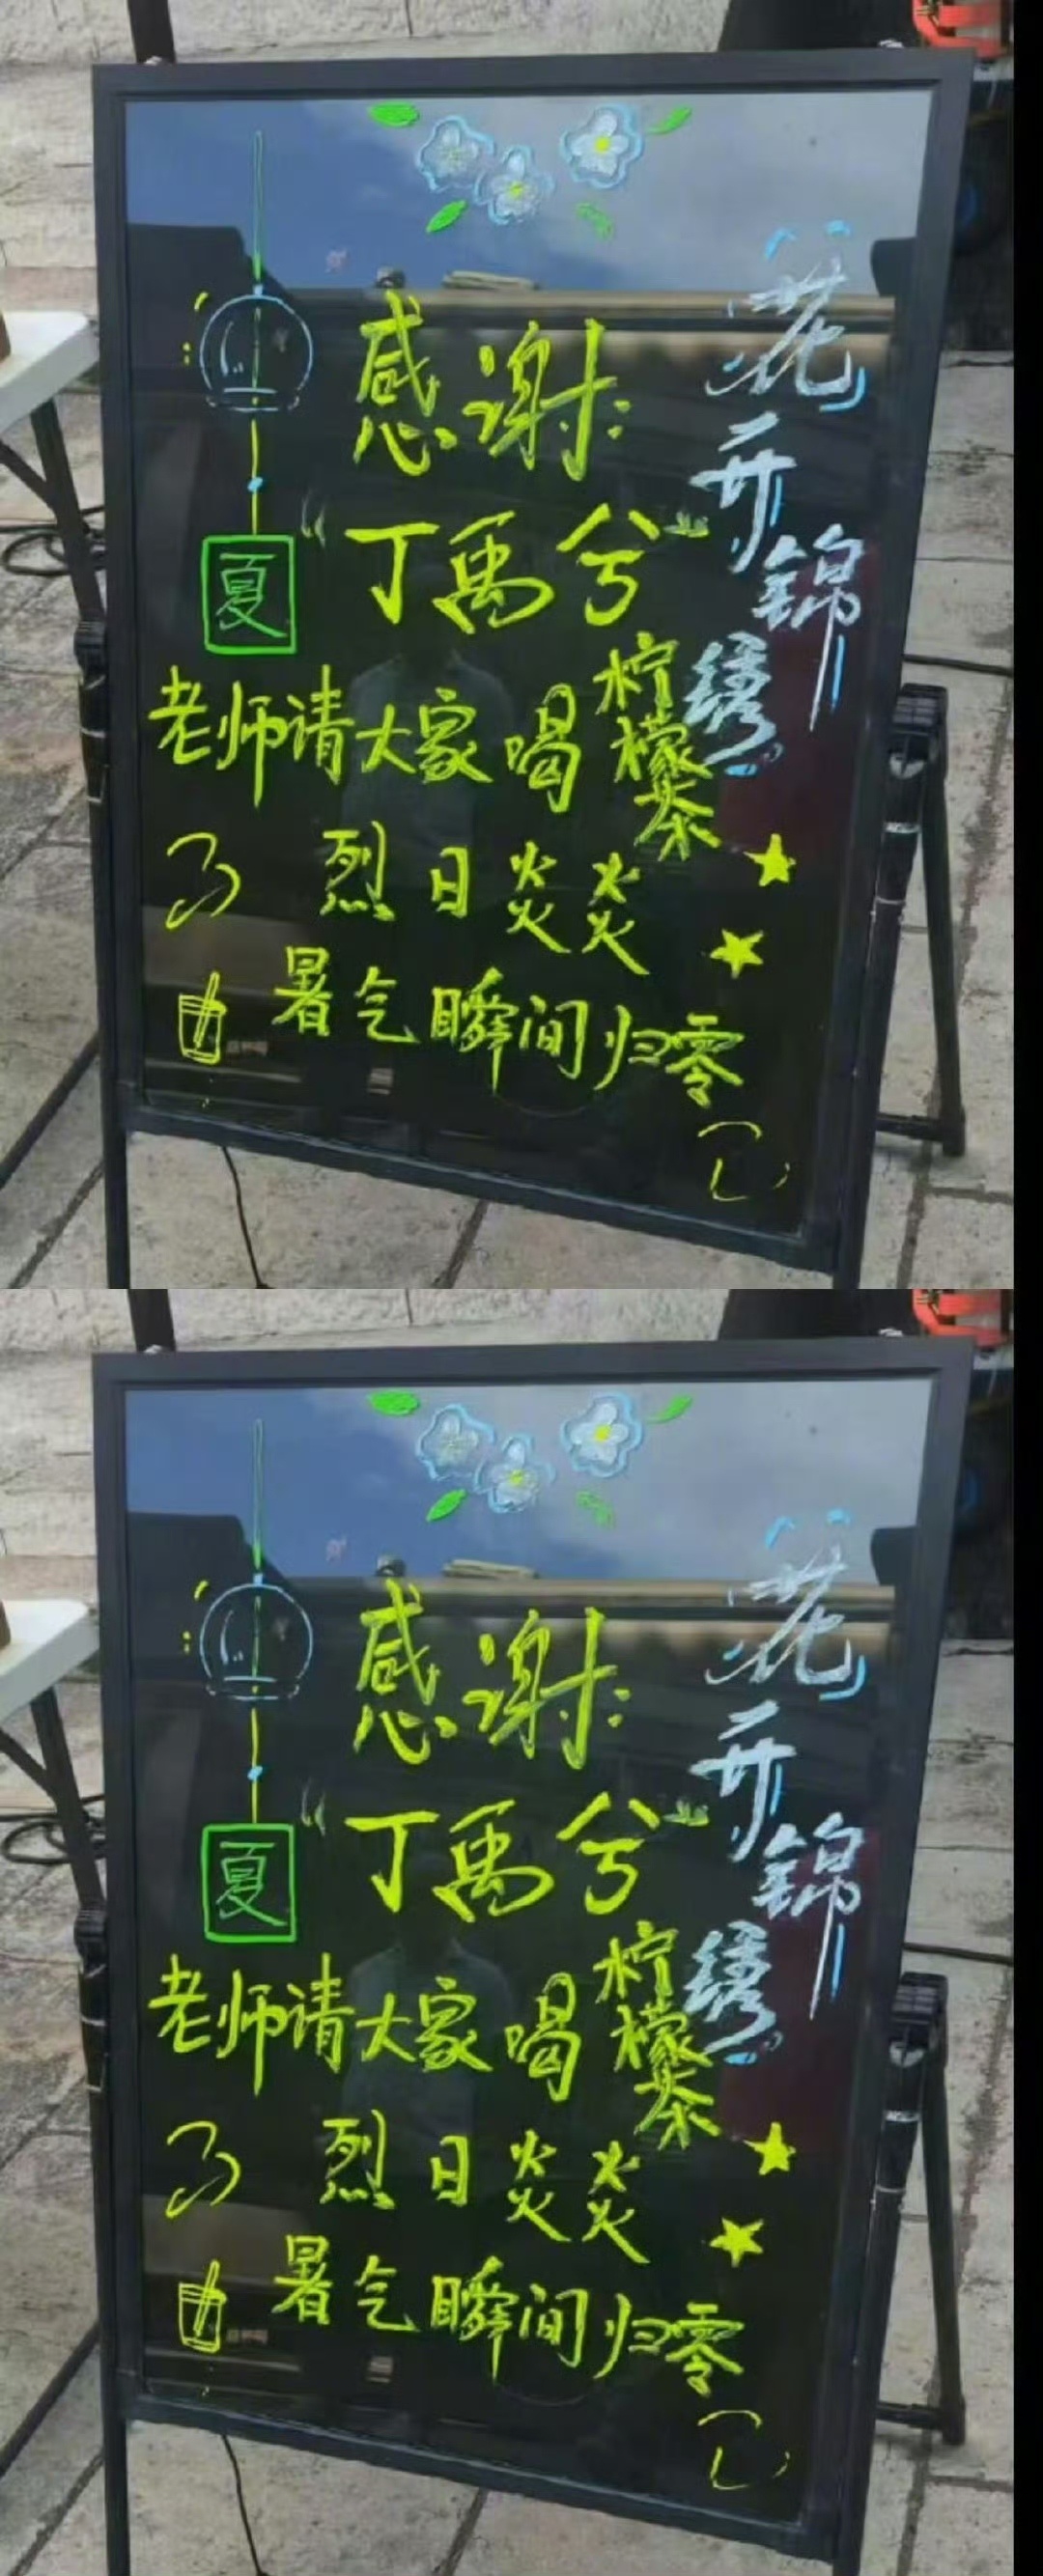 感谢:
“丁禹兮”
老师请大家喝柠檬茶
了 烈日炎炎
暑气瞬间归零
夏
花开锦绣
感谢:
“丁禹兮”
老师请大家喝柠檬茶
了 烈日炎炎
暑气瞬间归零
夏
花开锦绣